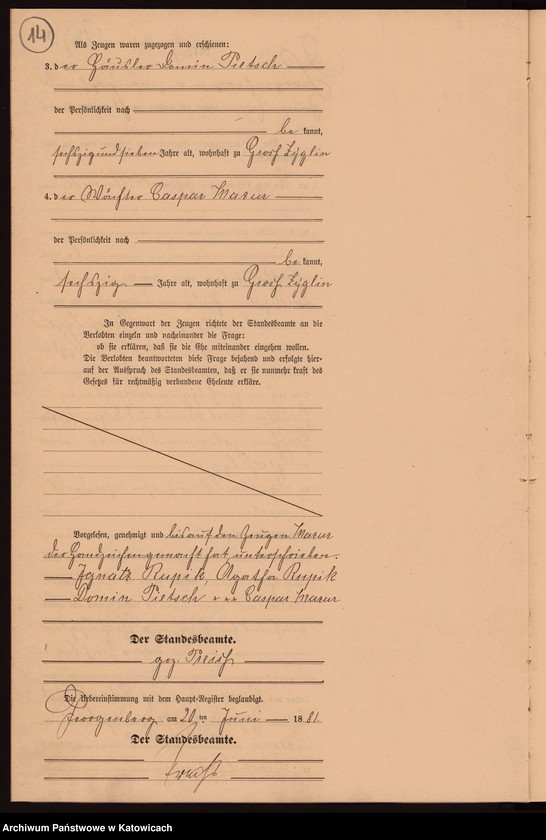 14
Als Zeugen waren zugezogen und erschienen:
3. der Häusler Domin Pietsch
der Persönlichkeit nach
bekannt,
sechszigundsieben Jahre alt, wohnhaft zu Groß Zyglin
4. der Wächter Caspar Mazur
der Persönlichkeit nach
bekannt,
sechszig Jahre alt, wohnhaft zu Groß Zyglin
In Gegenwart der Zeugen richtete der Standesbeamte an die
Verlobten einzeln und nacheinander die Frage:
ob sie erklären, daß sie die Ehe miteinander eingehen wollen.
Die Verlobten beantworteten diese Frage bejahend und erfolgte hier-
auf der Ausspruch des Standesbeamten, daß er sie nunmehr kraft des
Gesetzes für rechtmäßig verbundene Eheleute erkläre.
Vorgelesen, genehmigt und bis auf den Zeugen Mazur
der Handzeichen gemacht hat, unterschrieben.
Ignatz Rupik, Agatha Rupik
Domin Pietsch + + + Caspar Mazur
Der Standesbeamte.
gez.
Die Uebereinstimmung mit dem Haupt-Register beglaubigt.
Georgenberg am 20ten Juni 1881.
Der Standesbeamte.
Archiwum Państwowe w Katowicach